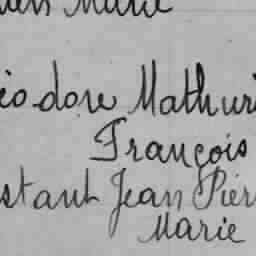 Marie
éodore Mathuri
François
stant Jean Pier
Marie